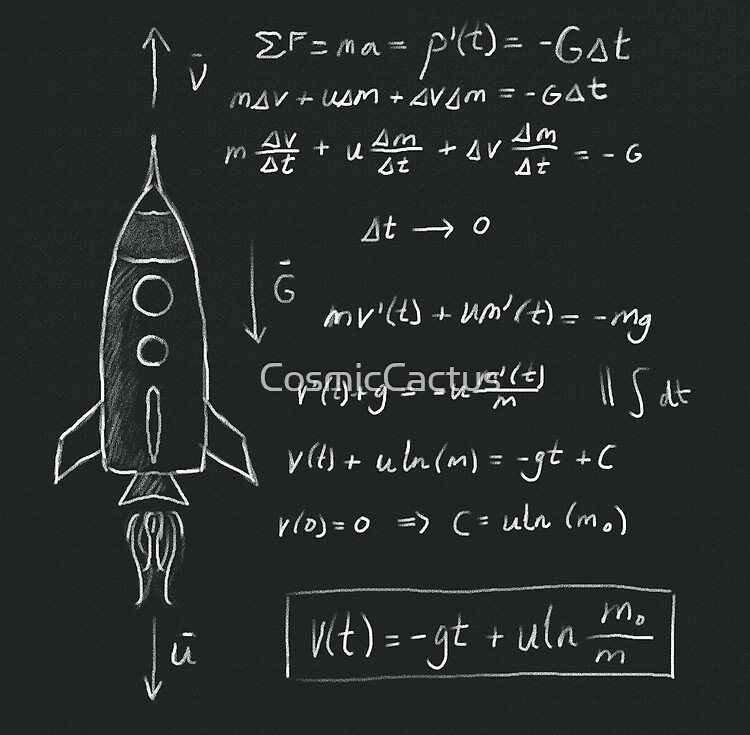 v̄
ΣF = ma = p'(t) = -GΔt
mΔv + uΔm + ΔvΔm = -GΔt
m Δv/Δt + u Δm/Δt + Δv Δm/Δt = -G
Δt → 0
Ḡ
mv'(t) + um'(t) = -mg
CosmicCactus
v'(t)+g = -u m'(t)/m || ∫ dt
v(t) + uln(m) = -gt + C
v(0)=0 => C = uln (m₀)
v(t) = -gt + uln m₀/m
ū